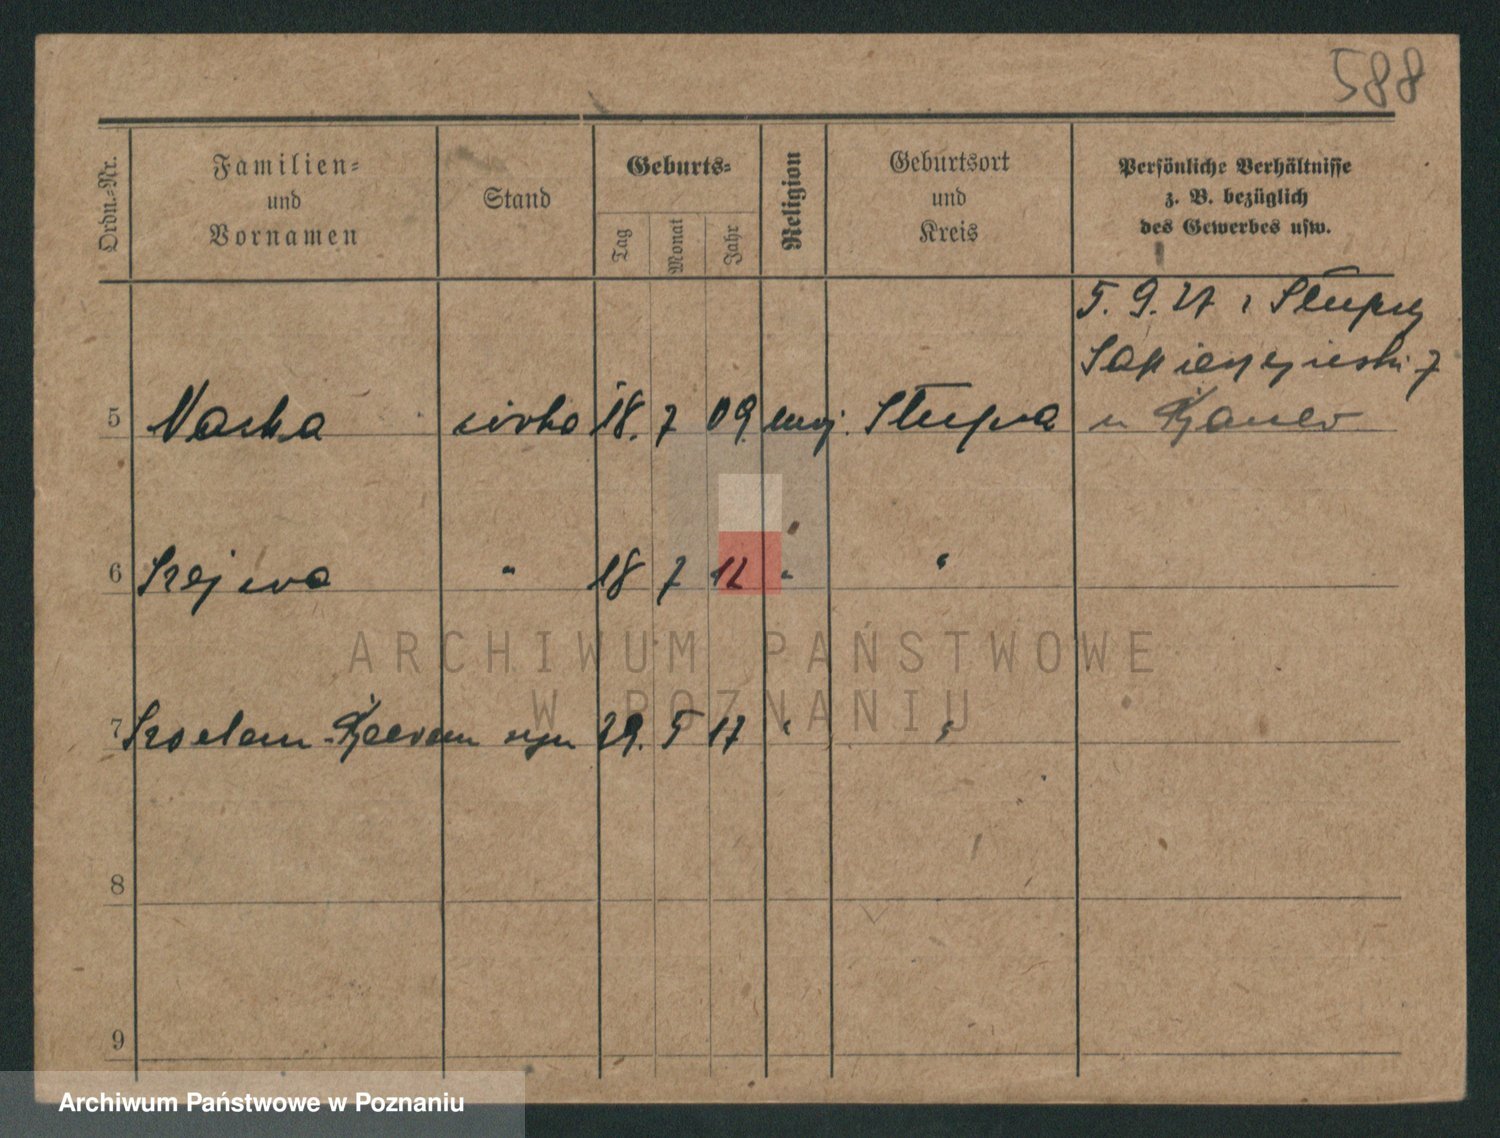 588
Ordn.-Nr.
Familien-
und
Vornamen
Stand
Geburts-
Tag
Monat
Jahr
Religion
Geburtsort
und
Kreis
Persönliche Verhältnisse
z. B. bezüglich
des Gewerbes usw.
5. 9. 27 z Słupcy
7
5 Maska córka 18. 7 09. mojż. Słupca u
6 " 18 7 12 " "
7 syn 29. 5 17 " "
8
9
ARCHIWUM PAŃSTWOWE
W POZNANIU
Archiwum Państwowe w Poznaniu